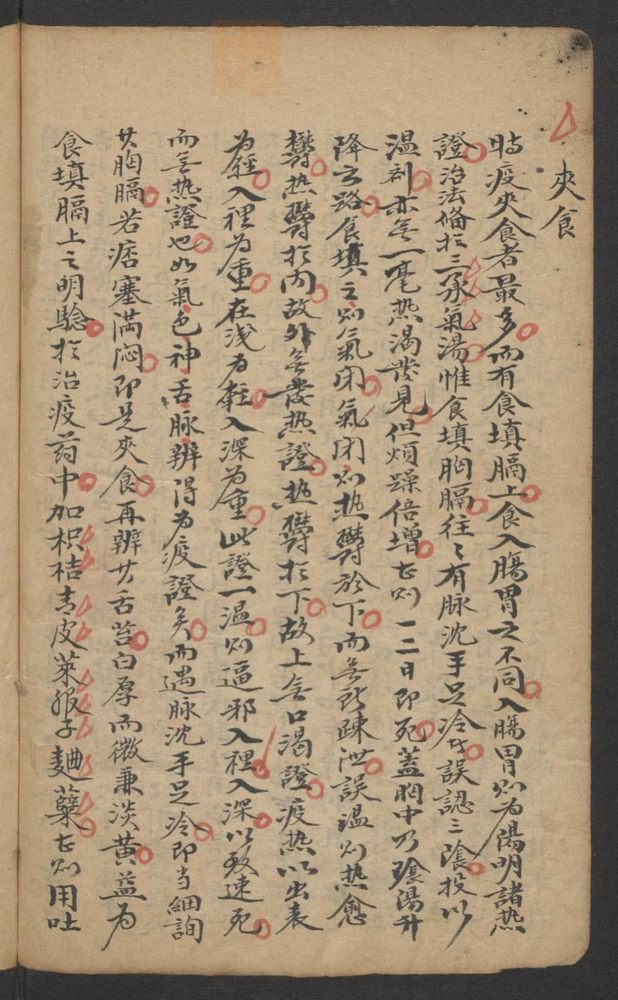 夾食
時疫夾食者最多而有食填膈上食入腸胃之不同入腸胃則為陽明諸热
證治法備於三承氣湯惟食填胸膈往〻有脉沈手足冷者誤認三陰投以
温剂亦無一毫热渴發見但煩躁倍增甚則一二日即死蓋胸中乃陰陽升
降之路食填之則氣闭氣闭則热鬱於下而無所疎泄誤温則热愈
鬱热鬱於內故外無發热證热鬱於下故上無口渴證疫热以出表
為輕入裡為重在浅為輕入深為重此證一温則逼邪入裡入深以致速死
而無热證也如氣色神舌脉辨得為疫證矣而遇脉沈手足冷即当細詢
其胸膈若痞塞满闷即是夾食再辨其舌苔白厚而微兼淡黄益為
食填膈上之明驗於治疫药中加枳桔青皮萊服子麯糵甚則用吐